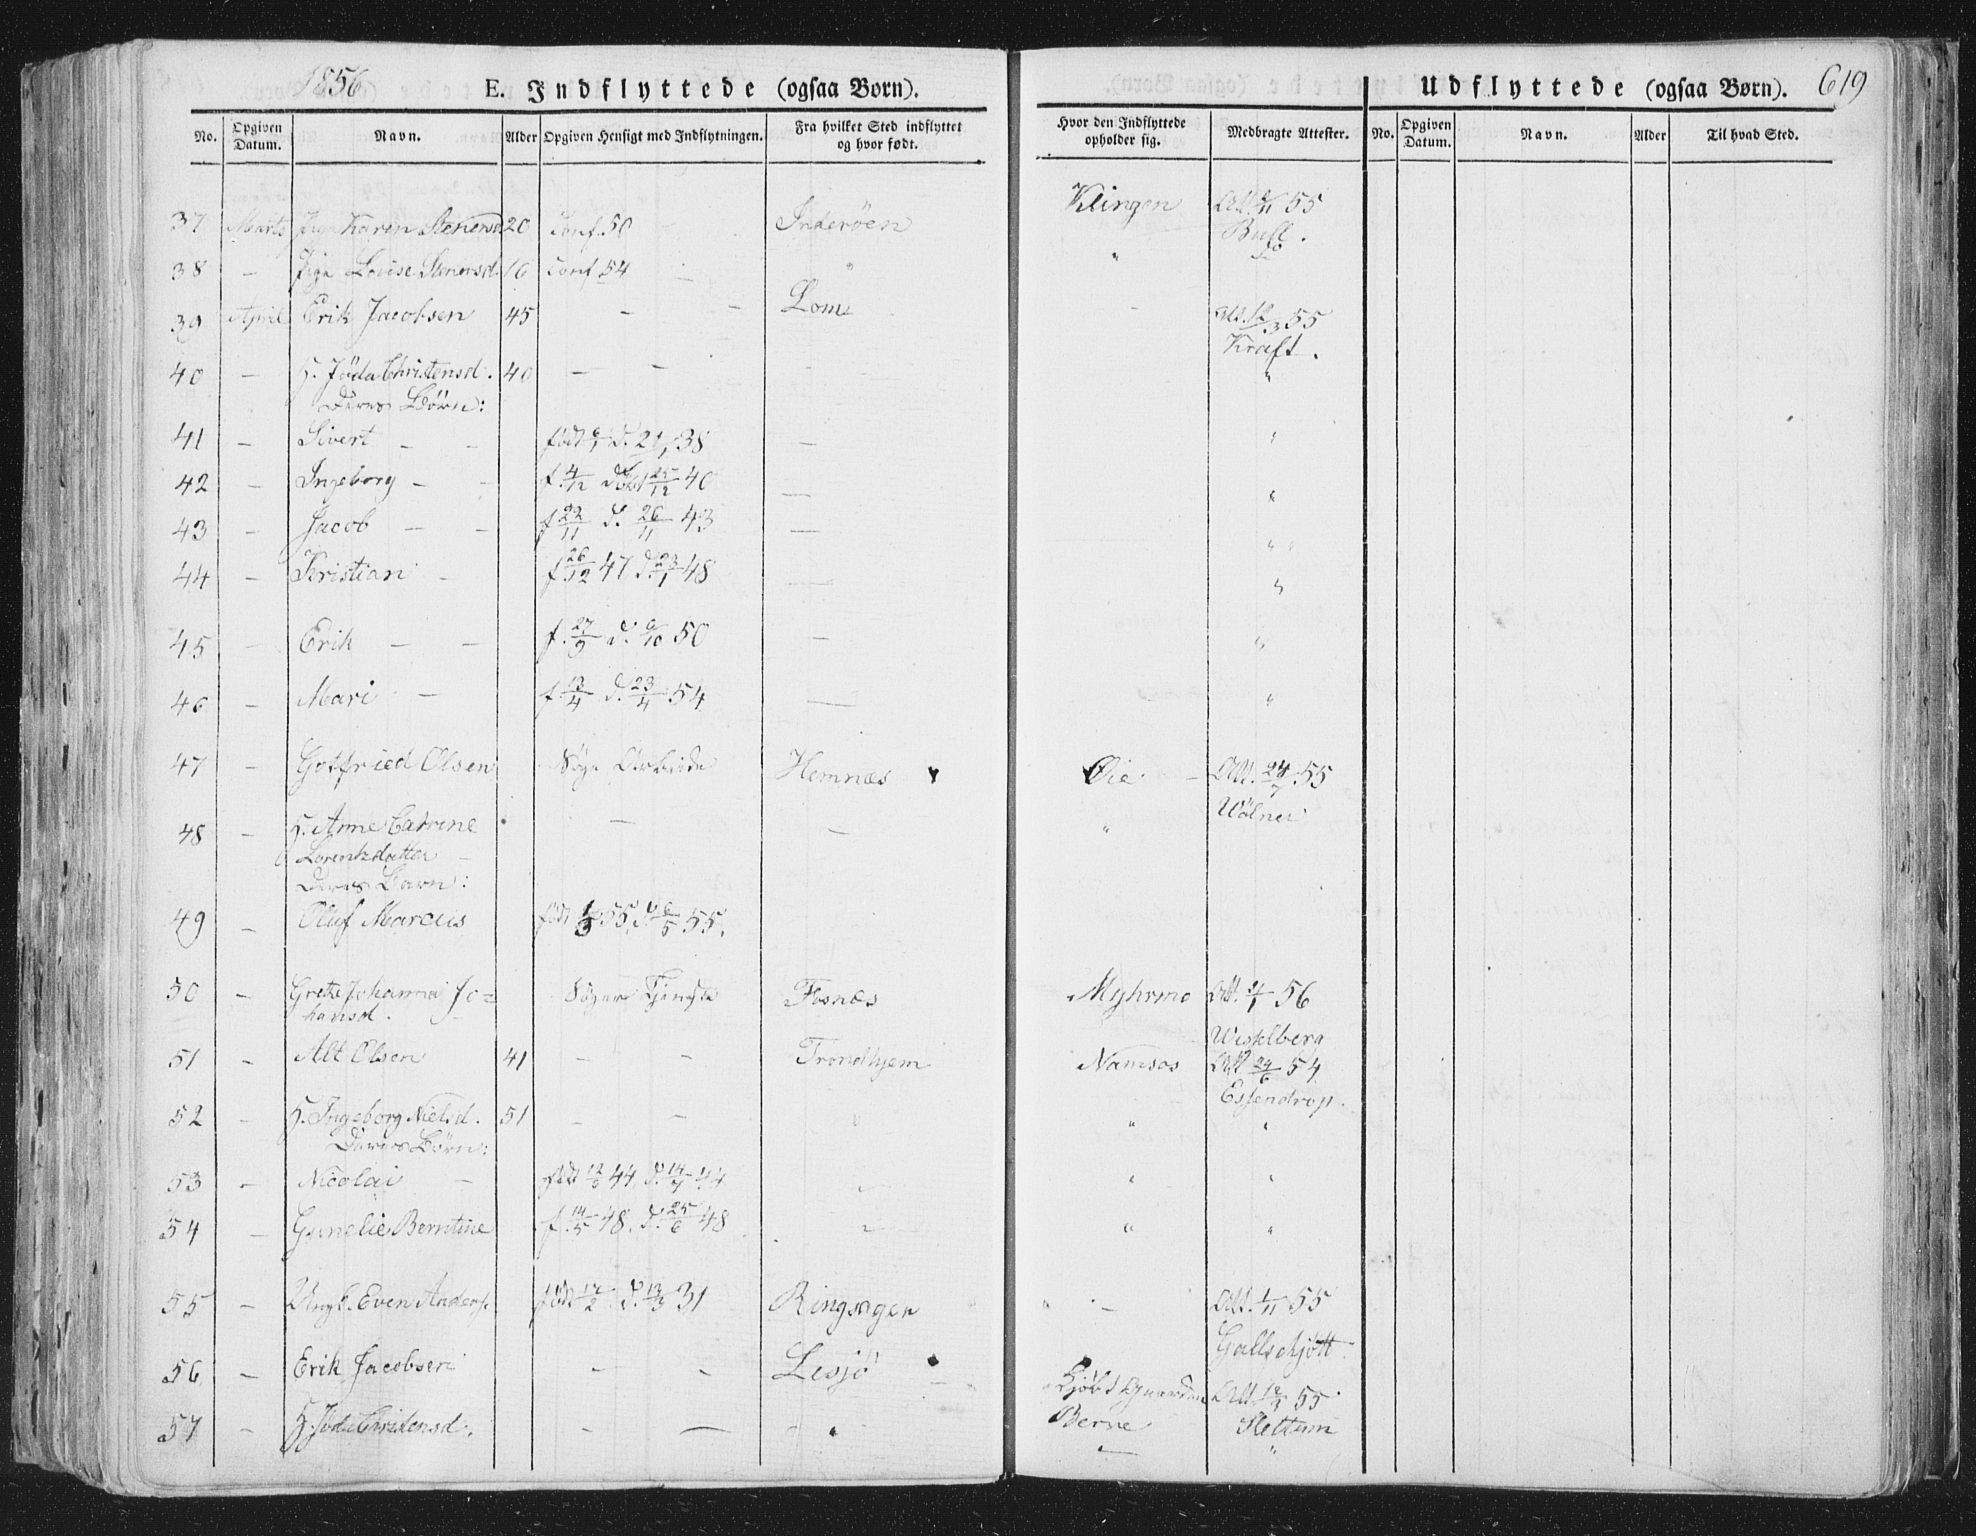 1856
E. Indflyttede (ogsaa Børn).
Udflyttede (ogsaa Børn). 619
No. Opgiven Datum. Navn. Alder Opgiven Hensigt med Indflytningen. Fra hvilket Sted indflyttet og hvor født. Hvor den Indflyttede opholder sig. Medbragte Attester. No. Opgiven Datum. Navn. Alder Til hvad Sted.
37 Marts Karen Stenersd 20 Conf. 50 Inderöen Klingen Att. 55
Bull.
38 — Louise Stenersd. 16 Conf 54 " "
39 April Erik Jacobsen 45 — — Lom — Att. 12/3 55
Kraft.
40 — H. Jöda Christensd. 40 — — "
Deres Börn:
41 — Sivert — — født d. 21/1 38 — "
42 — Ingeborg — — f. 4/12 døbt 25/12 40 — "
43 — Jacob — — f. 22/11 d. 26/11 43 — " "
44 — Kristian — f. 26/12 47 d. 23/1 48 — "
45 — Erik — — f. 27/9 d. 6/10 50 — "
46 — Mari — f. 13/4 d. 23/4 54 — "
47 — Gotfried Olsen Söge Arbeide Hemnæs Øie — Att. 24/7 55
Wölner
48 — H. Anne Catrine — — "
Lorentzdatter —
Deres Barn:
49 — Oluf Marcus født 55, d. 6/5 55.
50 — Grete Johanna Jo= Söger Tjeneste Fosnæs Myhrmo Att. 56
hansd.
Wisselberg
51 — Alt Olsen 41 — — Trondhjem Namsos Att 24/6 54
Essendrop.
52 — H. Ingeborg Nielsd. 51 — — " " "
Deres Börn:
53 — Nicolai — født 12/6 44, d. 14/7 44 " " "
54 — Gunelie Berntine f. 14/5 48. d. 25/6 48 " " "
55 — Ungk. Even Anders. født 17/2 d. 13/3 31 Ringsager — Att. 1/11 55
Gallschjött
56 — Erik Jacobsen — — Lesjö Att. 12/3 55
Berne Slettum
57 — H. Jöda Christensd. — — " — "